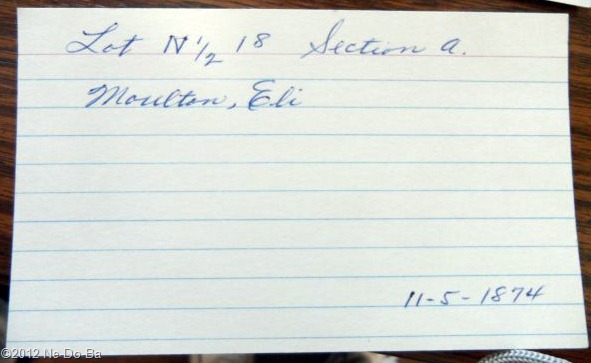 Lot N 1/2 18 Section A.
Moulton, Eli
11-5-1874
©2012 No Do Ba